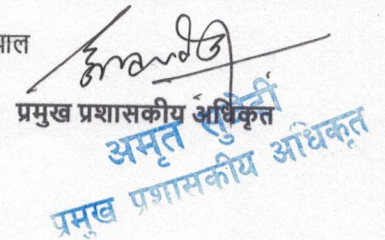 प्रमुख प्रशासकीय अधिकृत
अमृत सुवेदी
प्रमुख प्रशासकीय अधिकृत